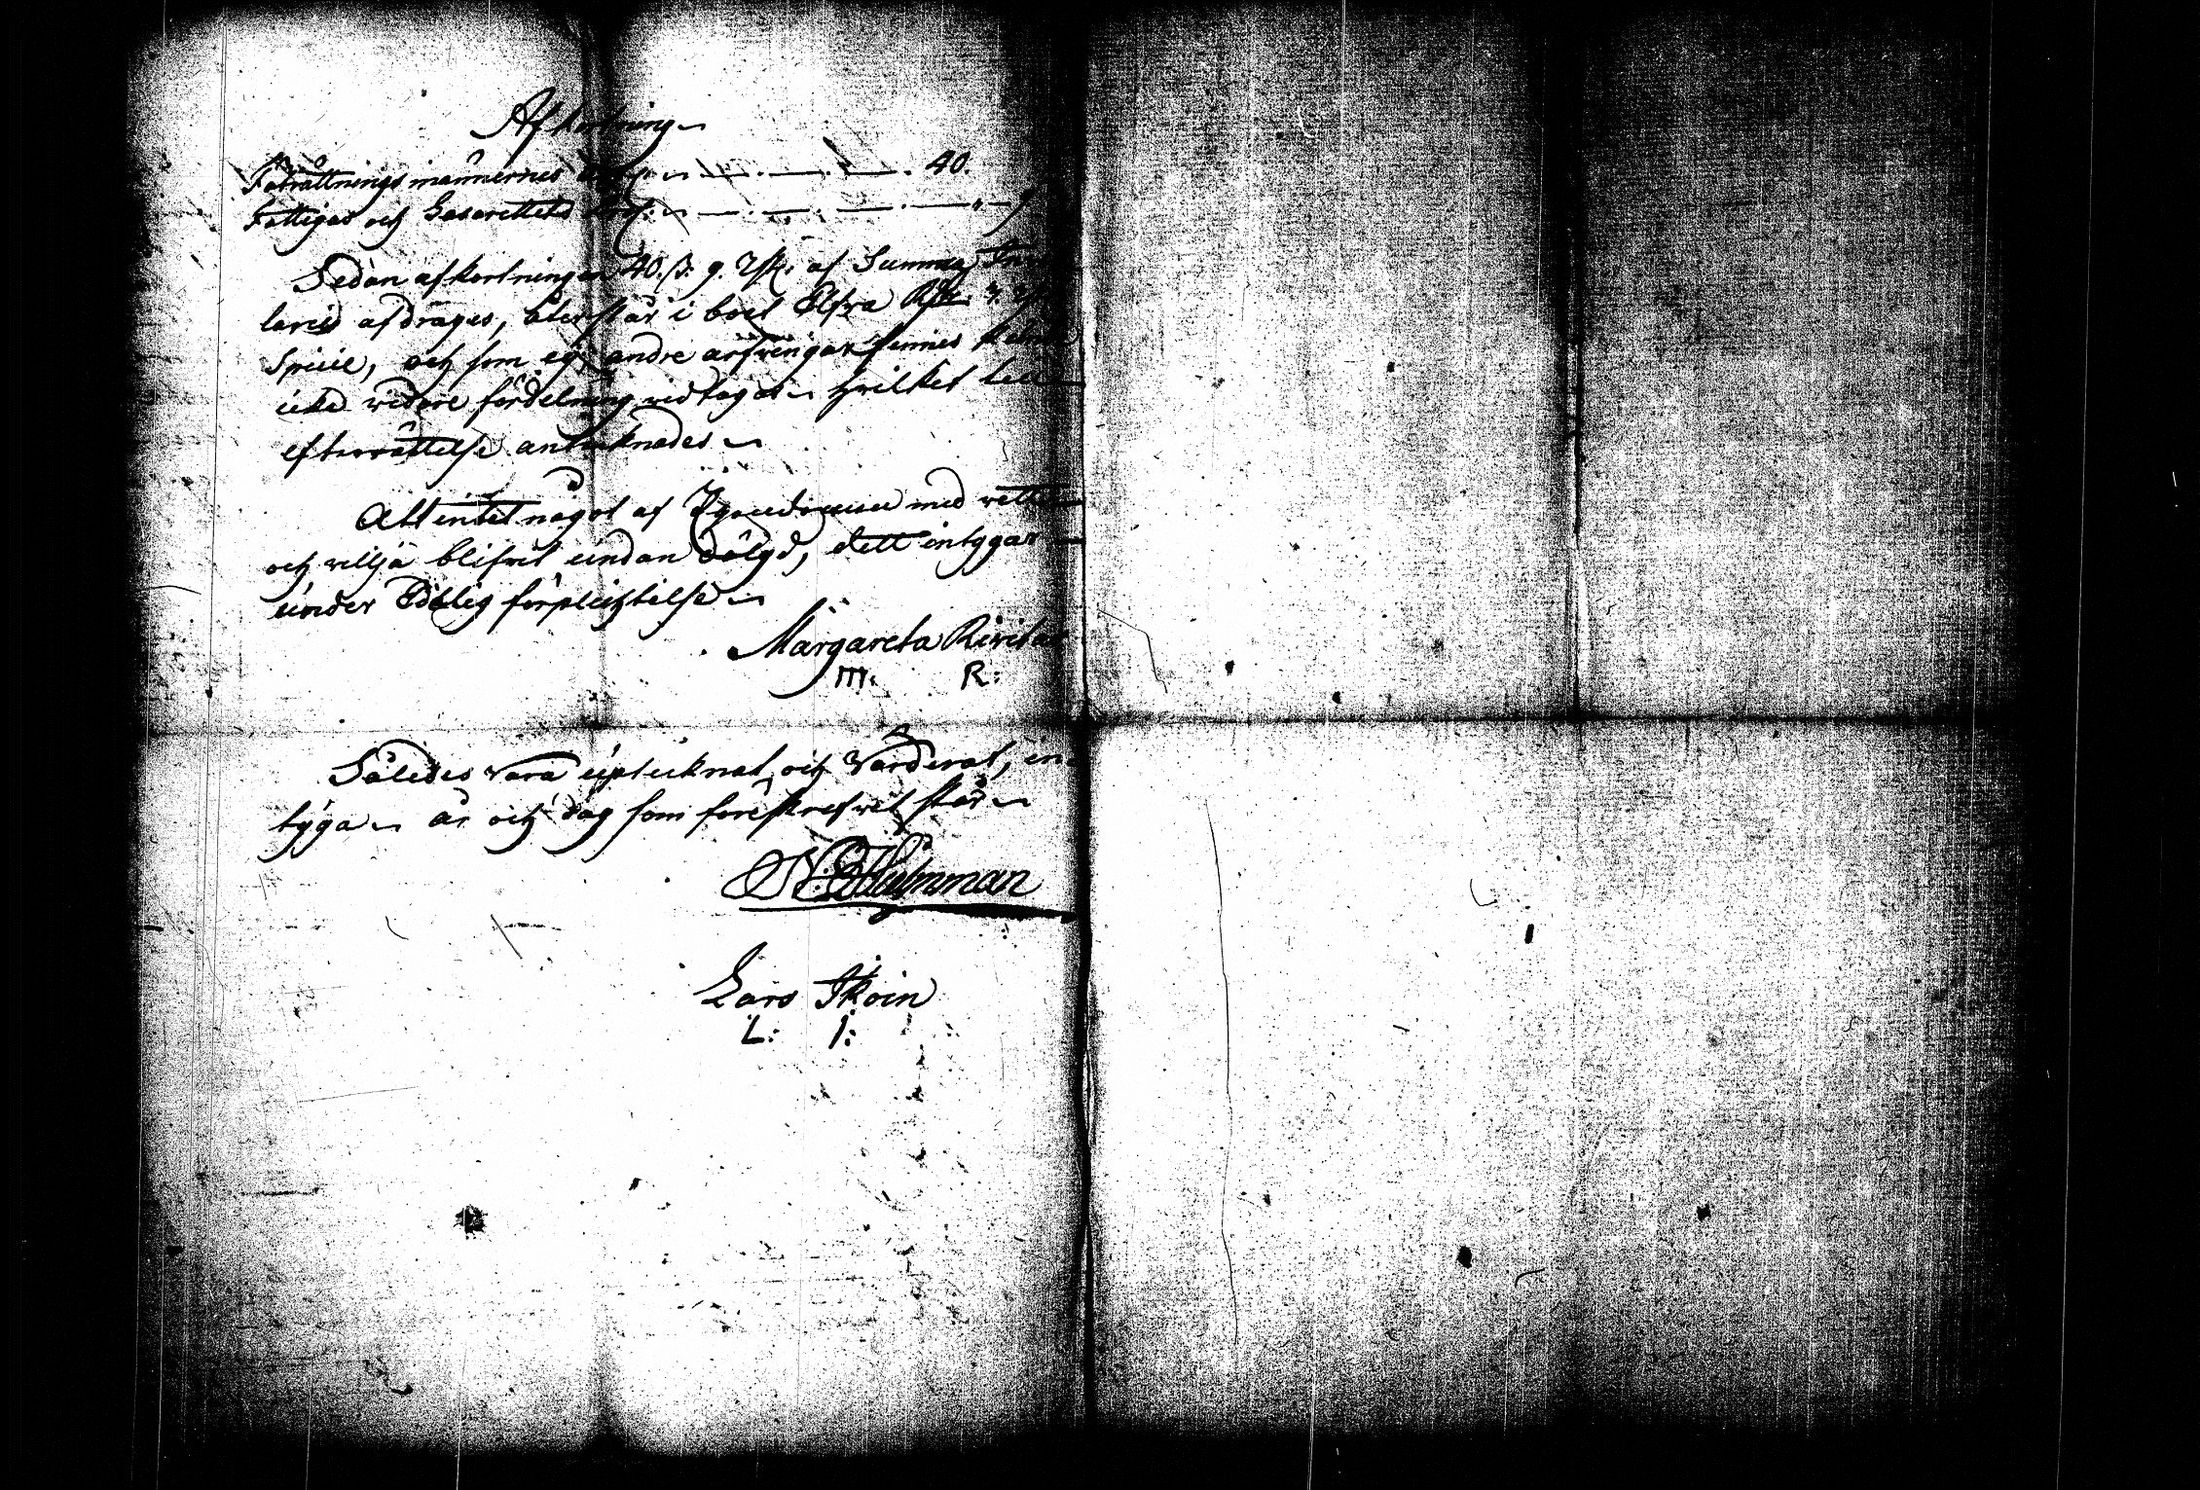 Afkortning
Förrättnings männernes arfv. — . — . — . 40.
Fattigas och Lasarettets Proc: — . — . — . — " — 9
Sedan afkortningen 40. ß. 9. rst. af Summa Inven
tarii afdrages, återstår i boet Elfva Rdr. 3. rst
Specie, och som ej andre arfvingar finnes
icke vidare fördelning vidtagas hvilket till
efterrättelse antecknades
Att intet något af Egendommen med vett
och vilja blifvit undan dölgd, dett intygar
under Edelig förplicktelse
Margareta
M. R:
Således vara uptecknat och Värderat, in
tyga år och dag som föreskrefvet står
Lars Skoin
L: S: